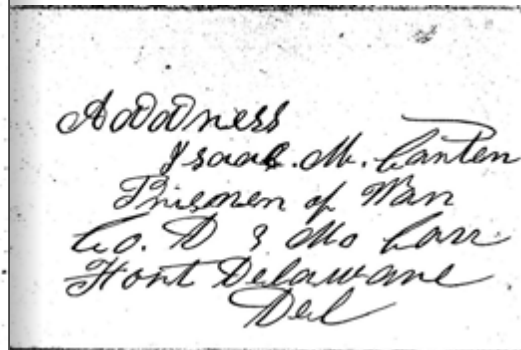 Address
Isaac. M. Carter
Prisoner of War
Co. D 3 Mo Cav
Fort Delaware
Del